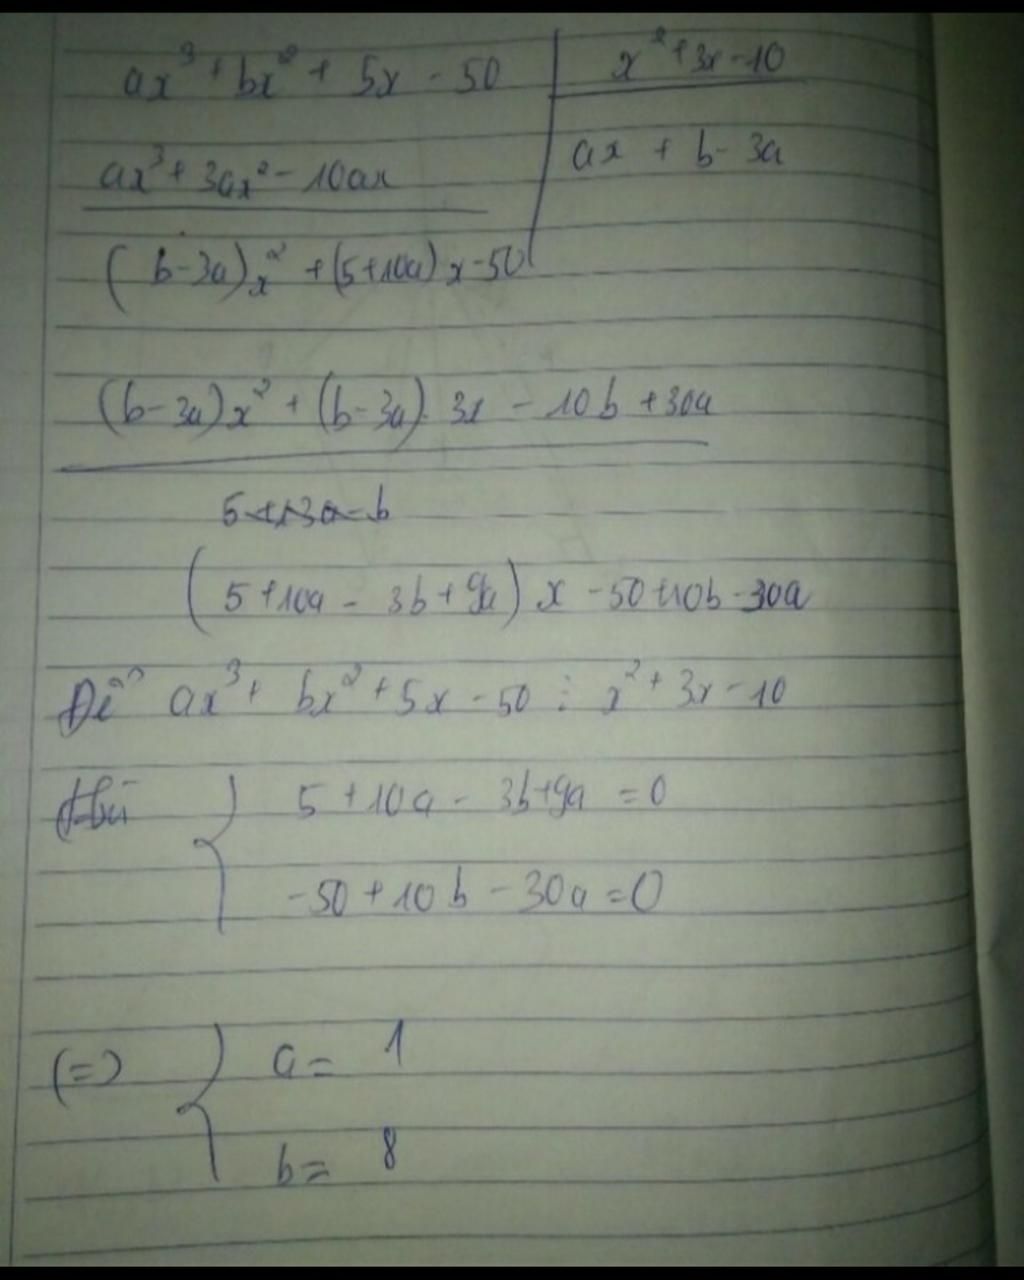 ax³ + bx² + 5x - 50 | x² + 3x - 10
ax³ + 3ax² - 10ax | ax + b - 3a
(b-3a)x² + (5+10a)x - 50
(b-3a)x² + (b-3a).3x - 10b + 30a
(5+10a - 3b+9a) x - 50+10b - 30a
Để ax³ + bx² + 5x - 50 ⋮ x² + 3x - 10
thì { 5 + 10a - 3b+9a = 0
-50 + 10b - 30a = 0
(=) { a = 1
b = 8